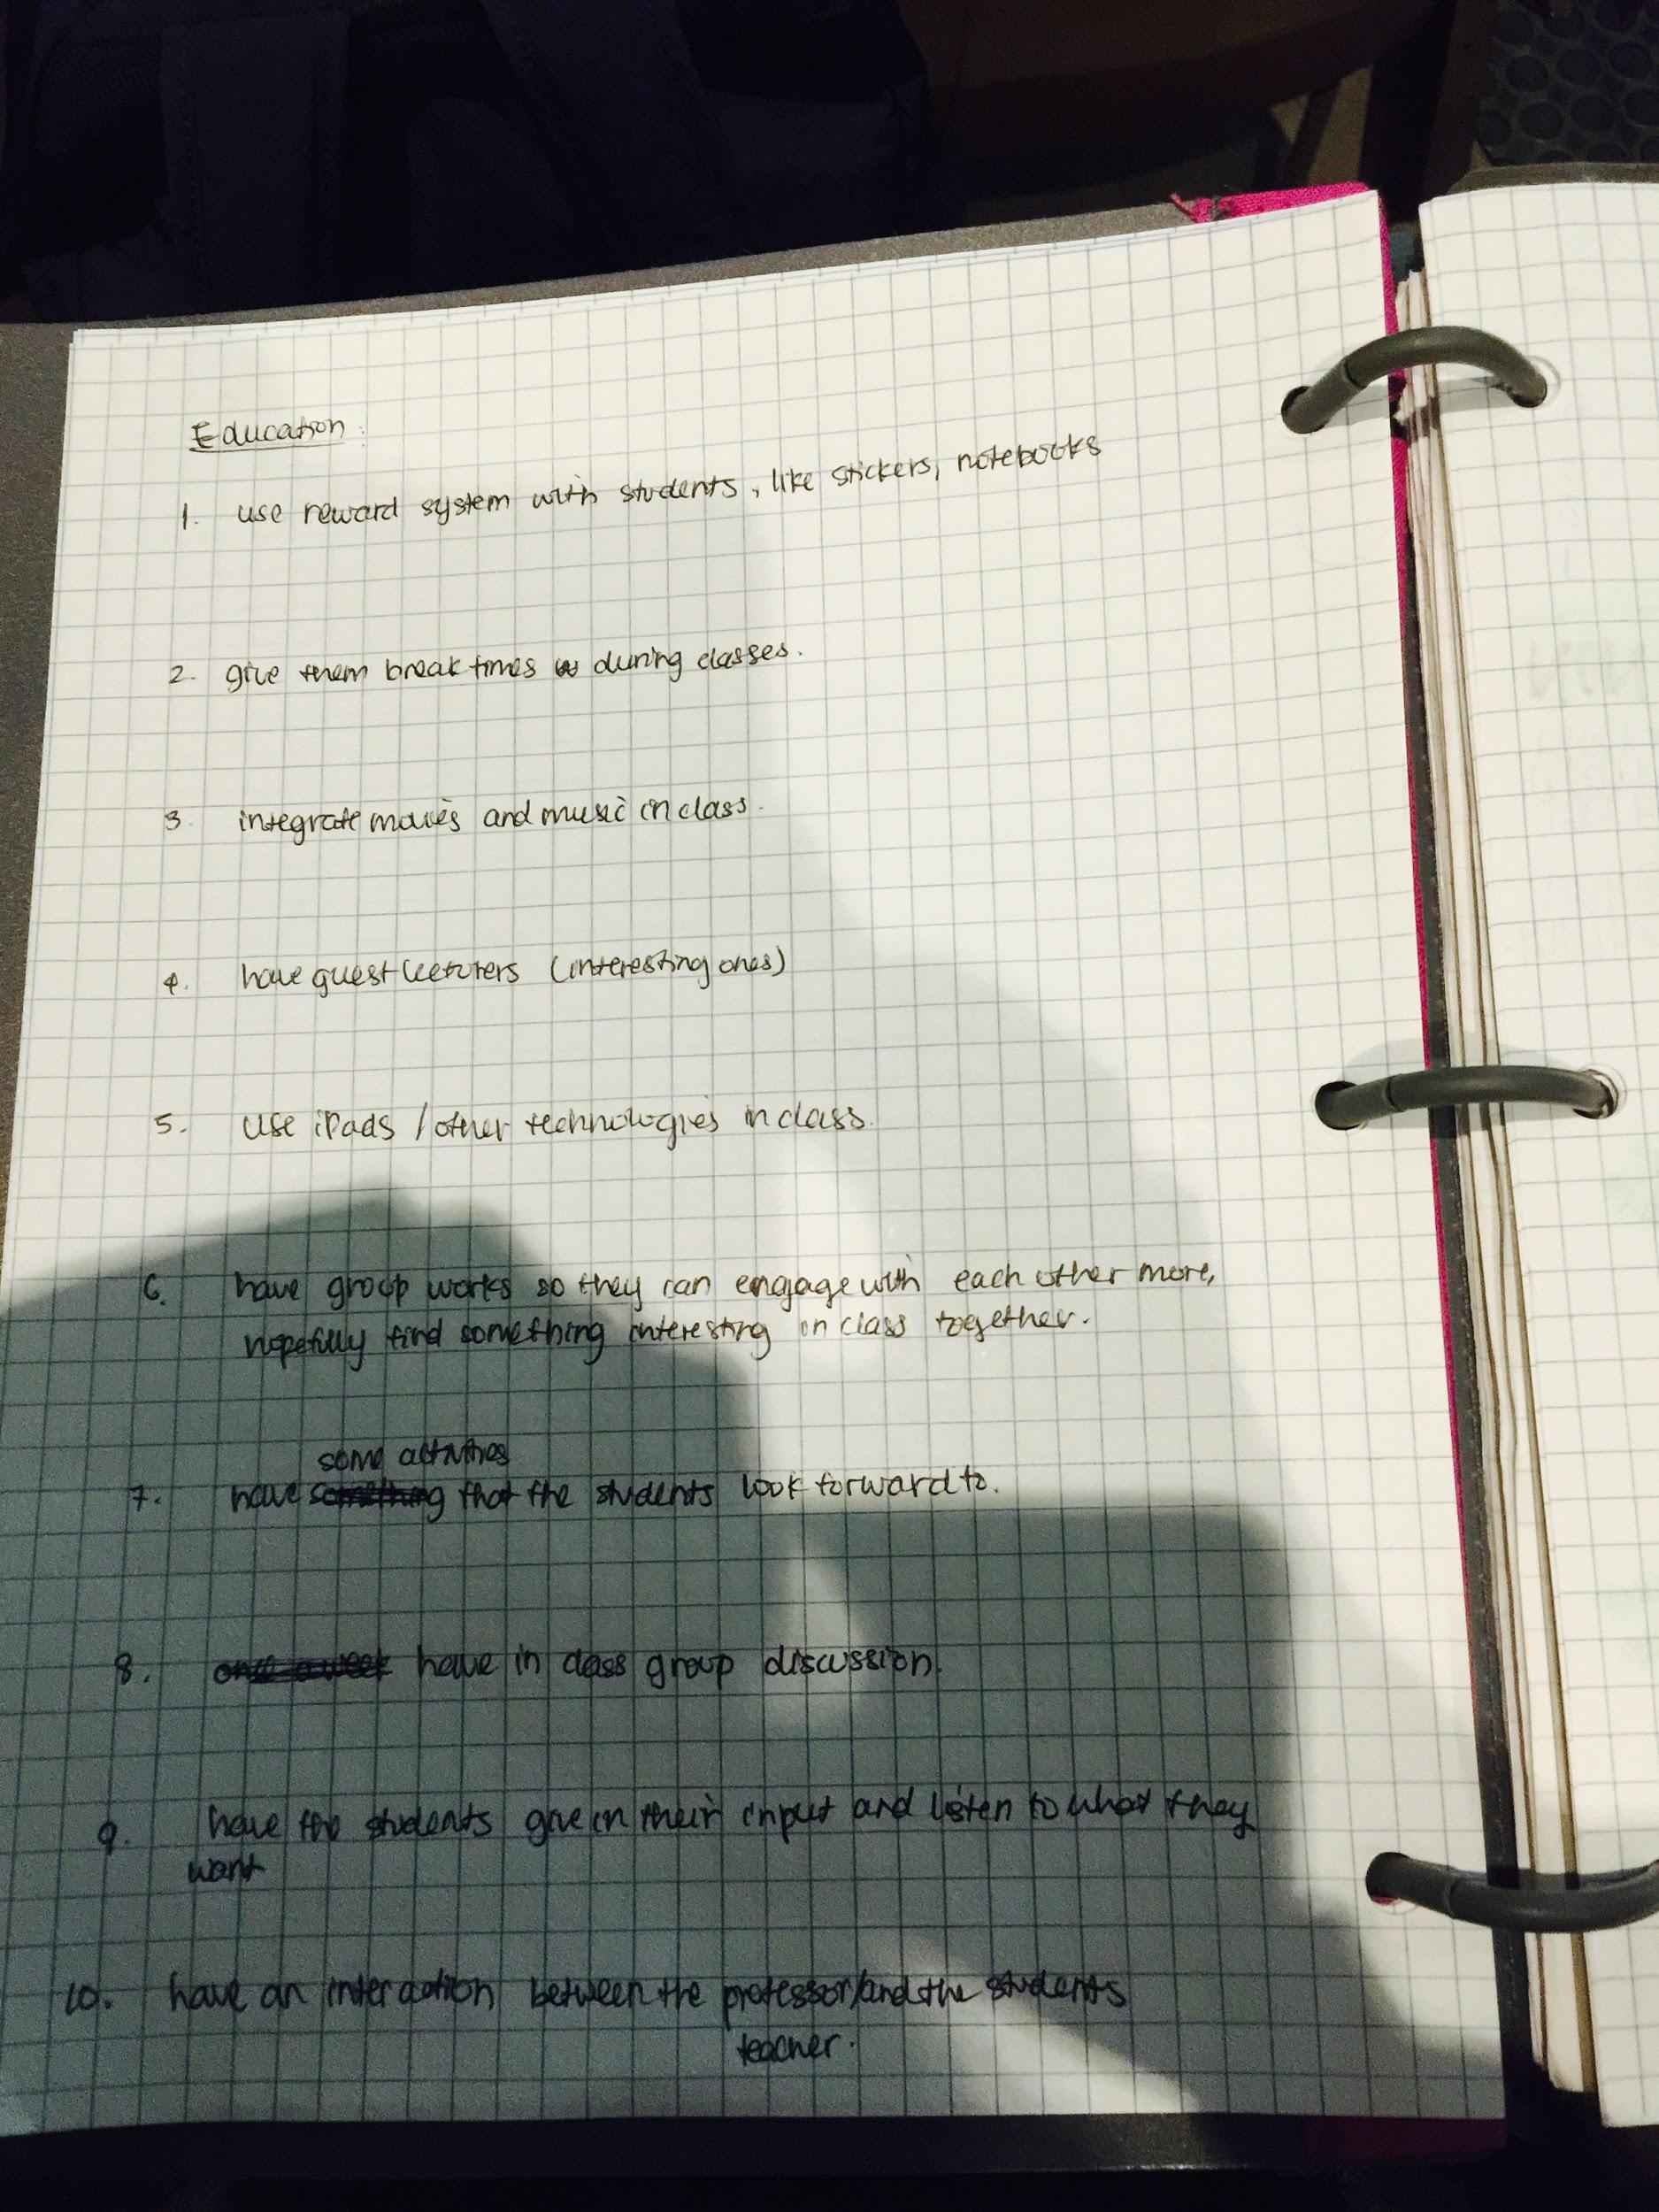 Education:
1. use reward system with students, like stickers, notebooks
2. give them break times during classes.
3 integrate movies and music in class.
4. have guest lecturers (interesting ones)
5. use iPads / other technologies in class.
6. have group works so they can engage with each other more,
hopefully find something interesting in class together.
some activities
7. have something that the students look forward to.
8. once a week have in class group discussion.
9. have the students give in their input and listen to what they
want
10. have an interaction between the professor/and the students
teacher.